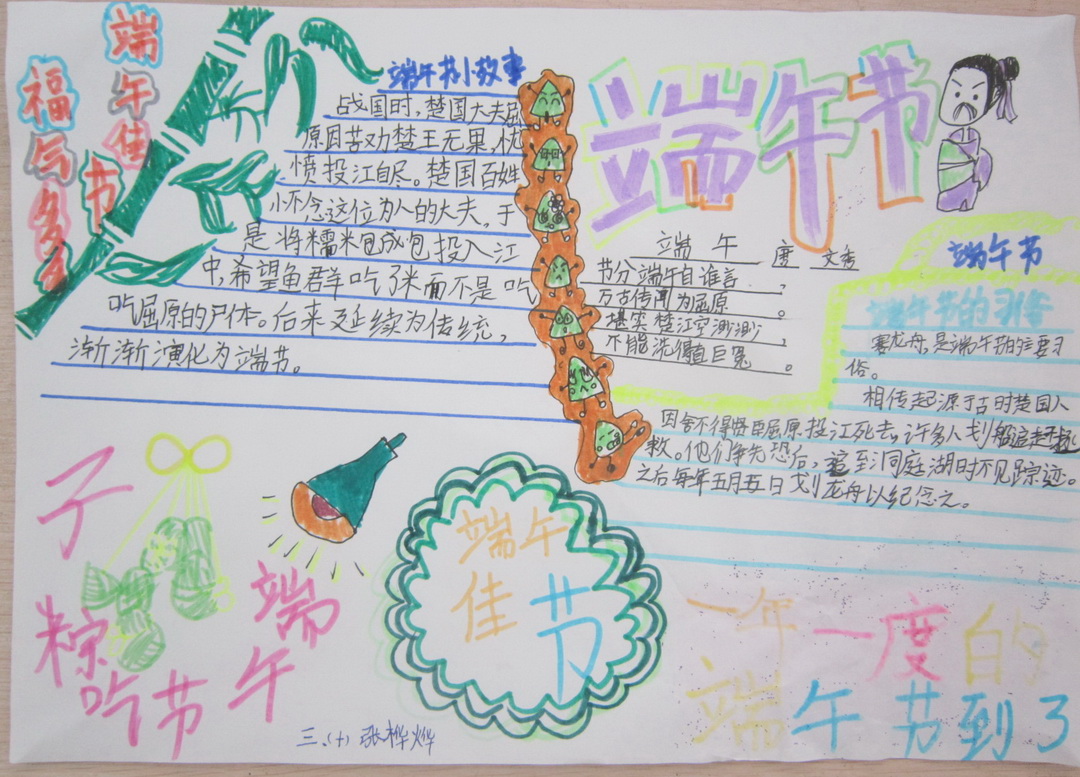 端午佳节
福气多多
端午节小故事
战国时，楚国大夫屈
原因苦劝楚王无果，忧
愤投江自尽。楚国百姓
小不念这位为人的大夫，于
是将糯米包成包投入江
中，希望鱼群吃了米而不是吃
吃屈原的尸体。后来延续为传统，
渐渐演化为端节。
端午节
端午 文秀
节分端午自谁言，
万古传闻为屈原。
堪笑楚江空渺渺，
不能洗得直臣冤。
端午节
端午节的习俗
赛龙舟，是端午节的主要习
俗。
相传起源于古时楚国人
因舍不得贤臣屈原投江死去，许多人划船追赶拯
救。他们争先恐后，追至洞庭湖时不见踪迹。
之后每年五月五日划龙舟以纪念之。
端午节吃粽子
端午
佳节
一年一度的
端午节到了
三、(十) 张桦烨